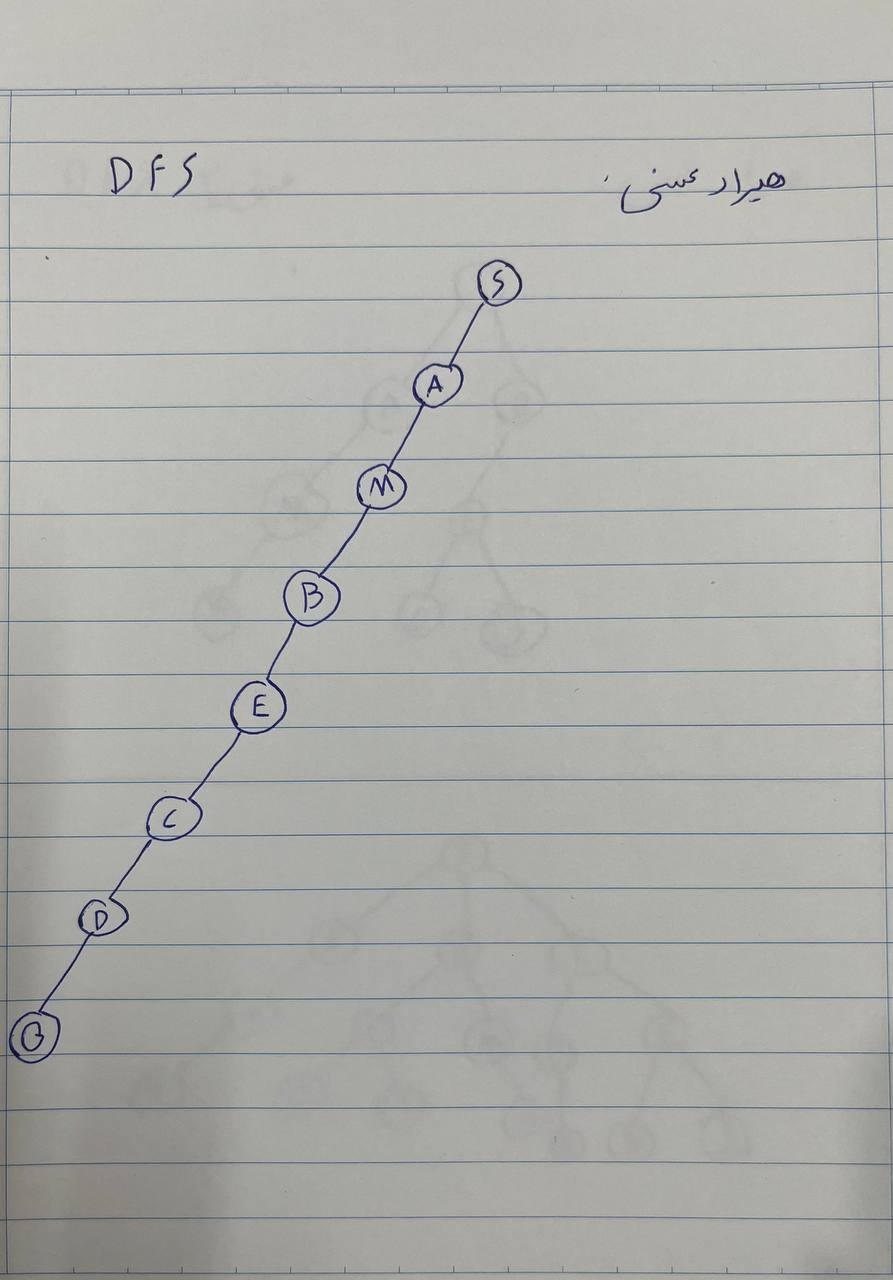 DFS
هیراد محسنی
S
A
M
B
E
C
D
G